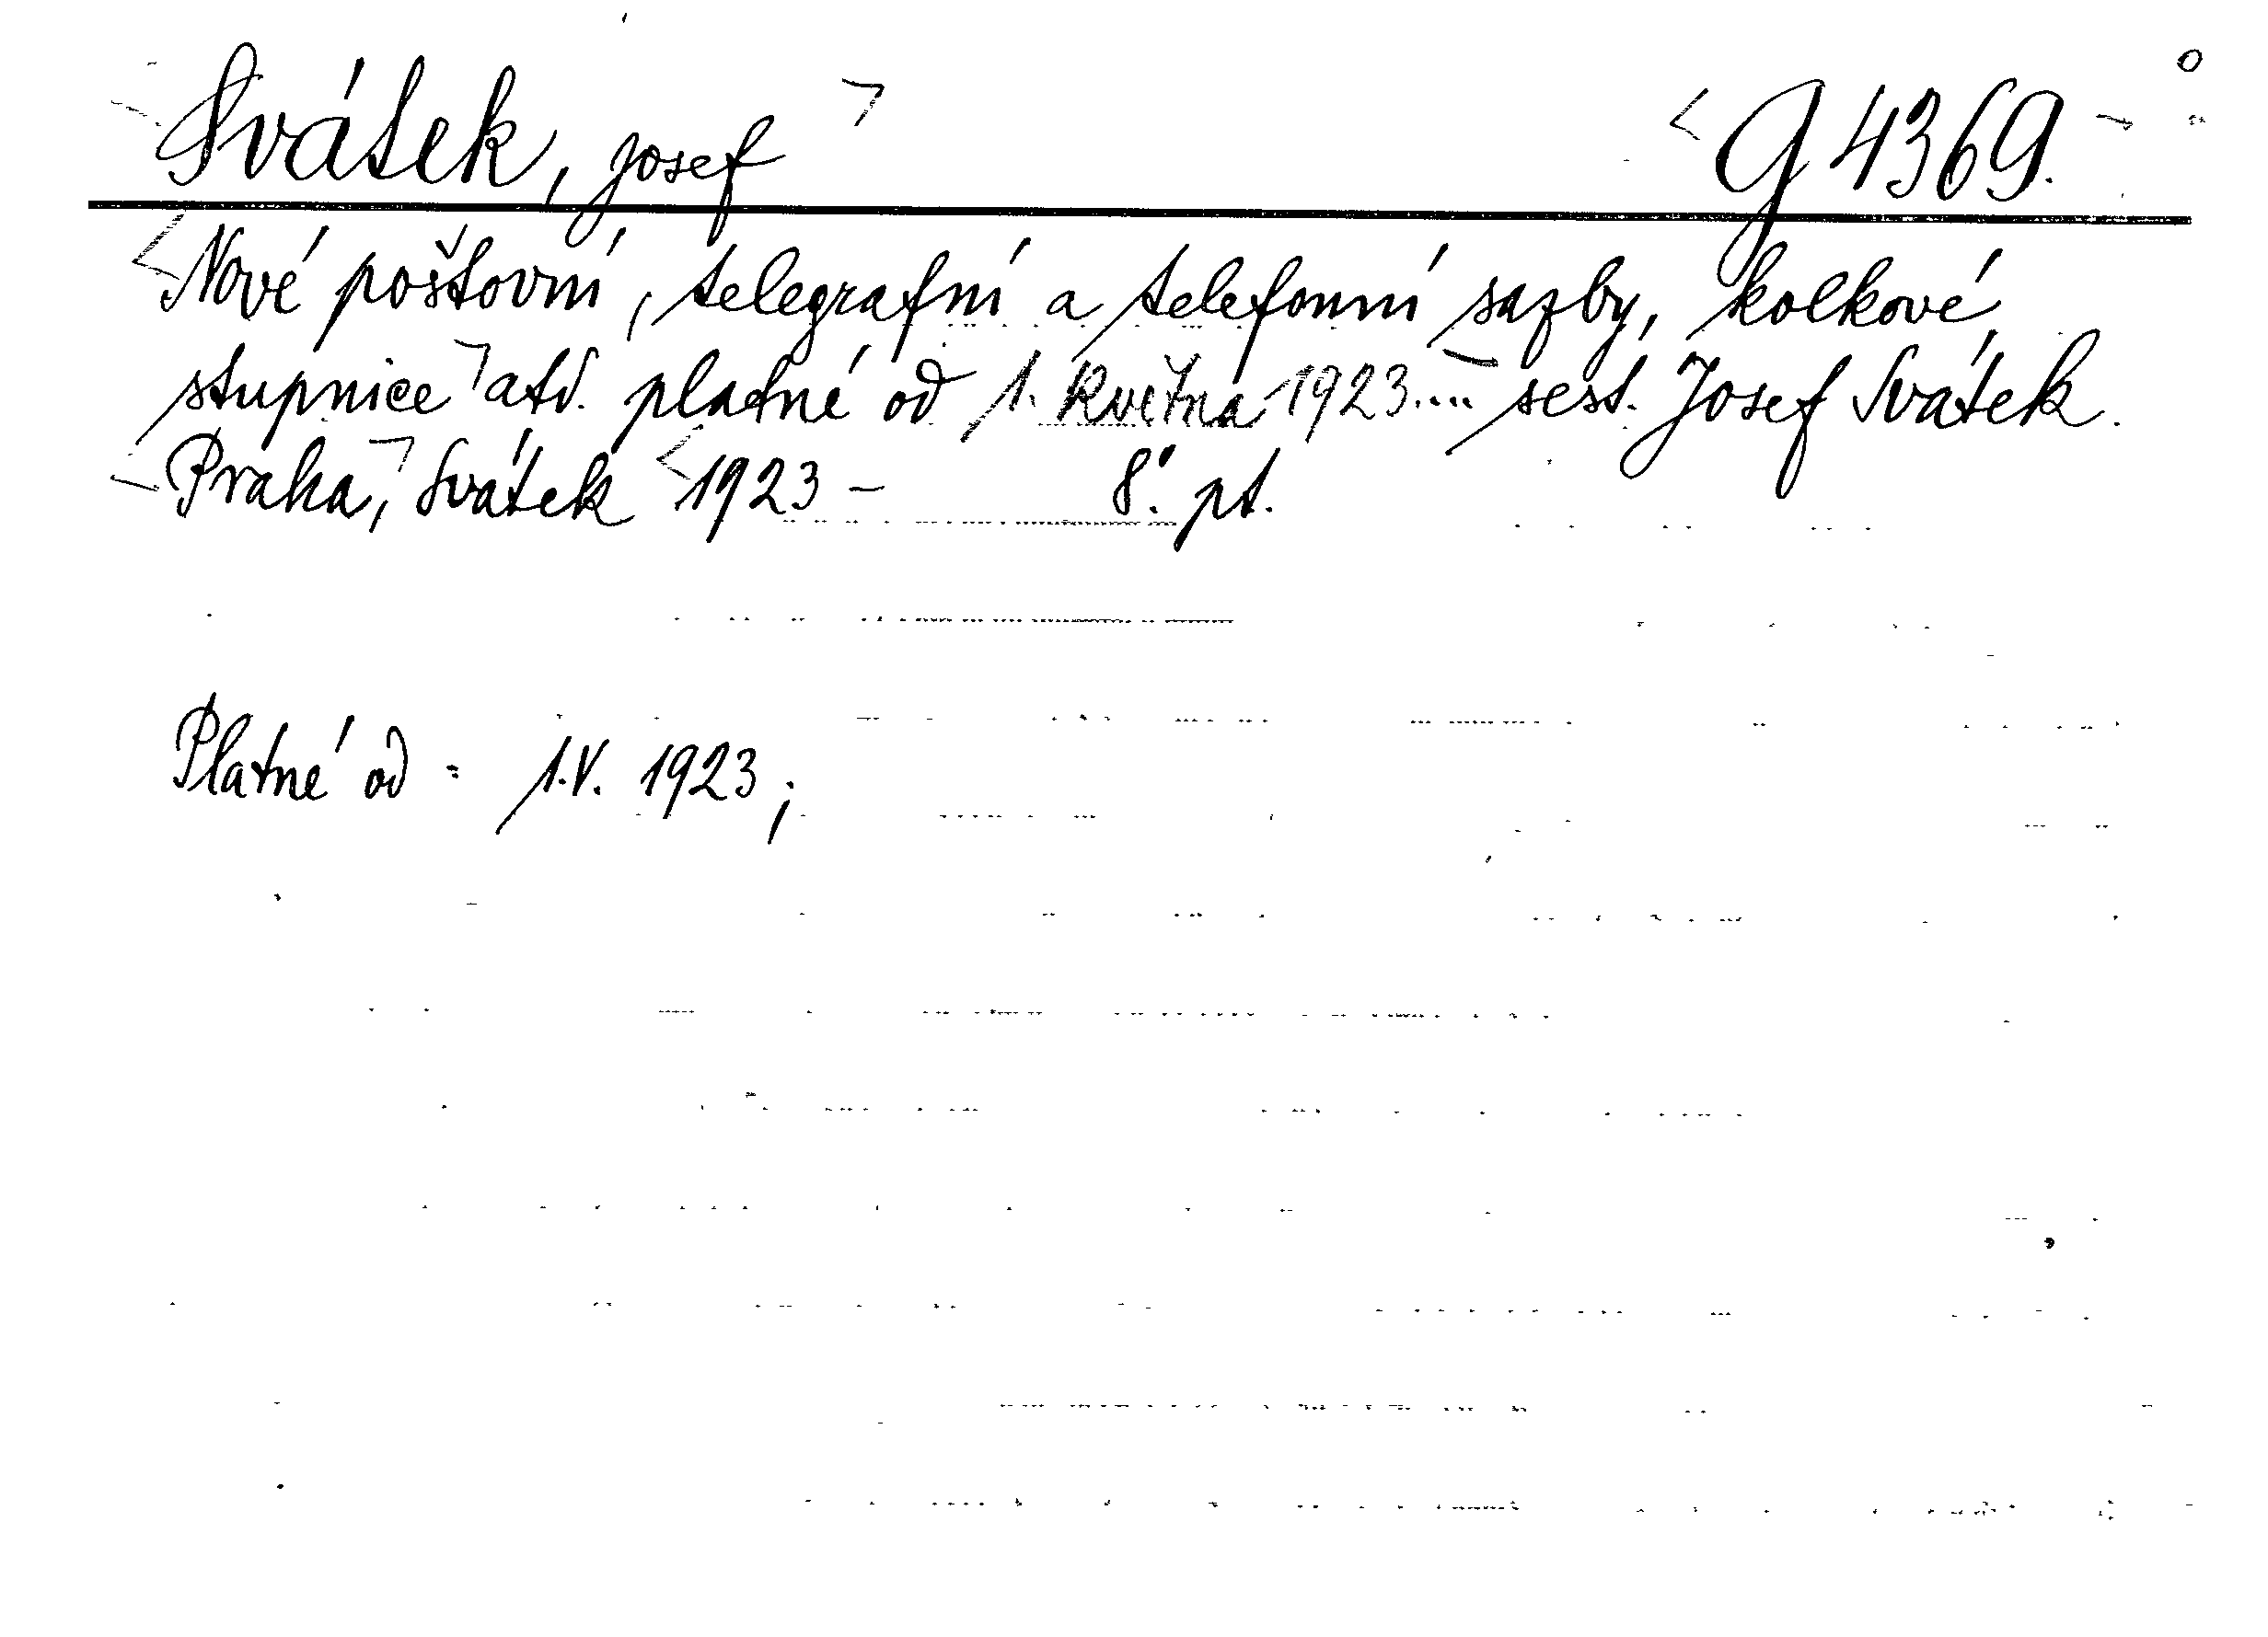 Svátek, Josef G 4369.
Nové poštovní, telegrafní a telefonní sazby, kolkové
stupnice atd. platné od 1. května 1923.... sest. Josef Svátek.
Praha, Svátek 1923 - 8°. pt.
Platné od = 1.V. 1923;